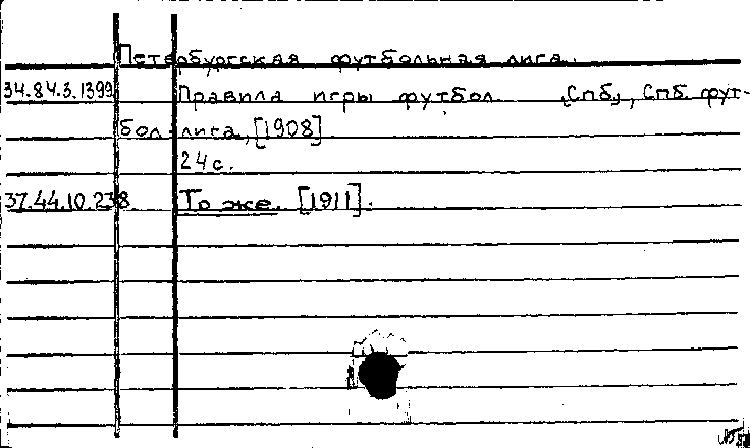 Петербургская футбольная лига.
34.84.3.1399 Правила игры футбол. „Спб.", Спб. фут-
бол. лига, [1908]
24 с.
37.44.10.238 То же. [1911].